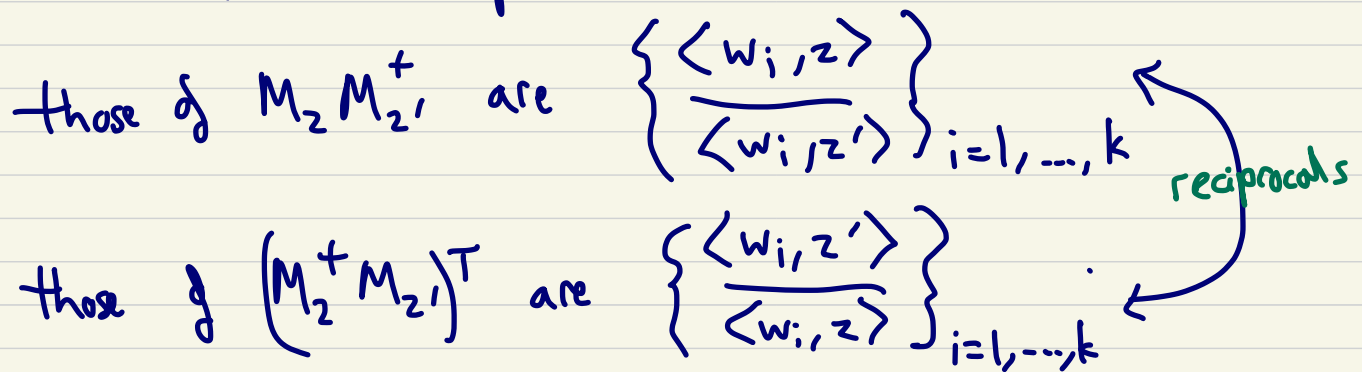 those of M_z M_{z'}^+ are { <w_i, z> / <w_i, z'> }_{i=1,...,k}
reciprocals
those of (M_z^+ M_{z'})^T are { <w_i, z'> / <w_i, z> }_{i=1,...,k}